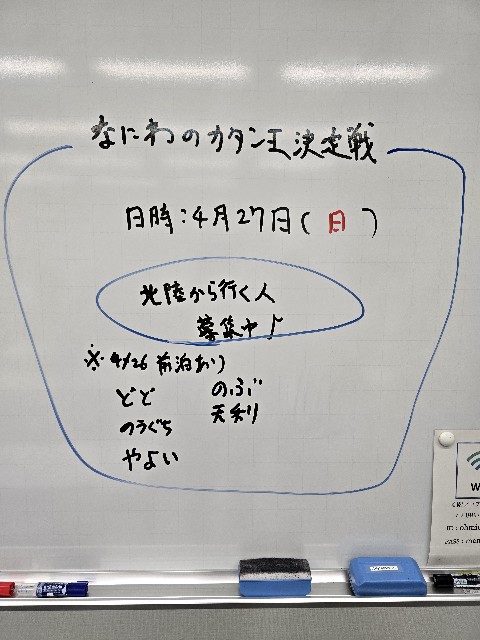 なにわのカタン王決定戦
日時：4月27日(日)
北陸から行く人
募集中♪
※4/26 前泊あり
どど
のぶ
のうぐち
天利
やよい